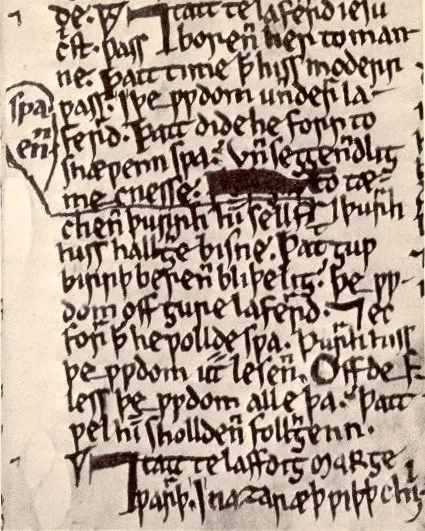 de. ⁊ tatt te laferrd iesu
crist. ƿass borenn her to man
ne. þatt time þ hiss moderr
ƿass. I þe ƿƿdom underr la
spa
enn
ferrd. Þatt dide he forr to
shæƿenn sƿa. Unnseggenndlig
me cnesse. to tæ
chenn þurrh himm sellf. ⁊ þurrh
hiss hallghe bisne. Þat guƿ
birrþ berenn bliþelig. þe ƿƿ
dom off gure laferrd. ⁊ ec
forr þ he ƿollde sƿa. Þurrh hiss
þe ƿƿdom ut lesenn. Off de f
less þe ƿƿdom alle þa. Þatt
ƿel himm shollden follghenn.
⁊ tatt te laffdig marge
ƿass. I nazaræþ ƿiþþ